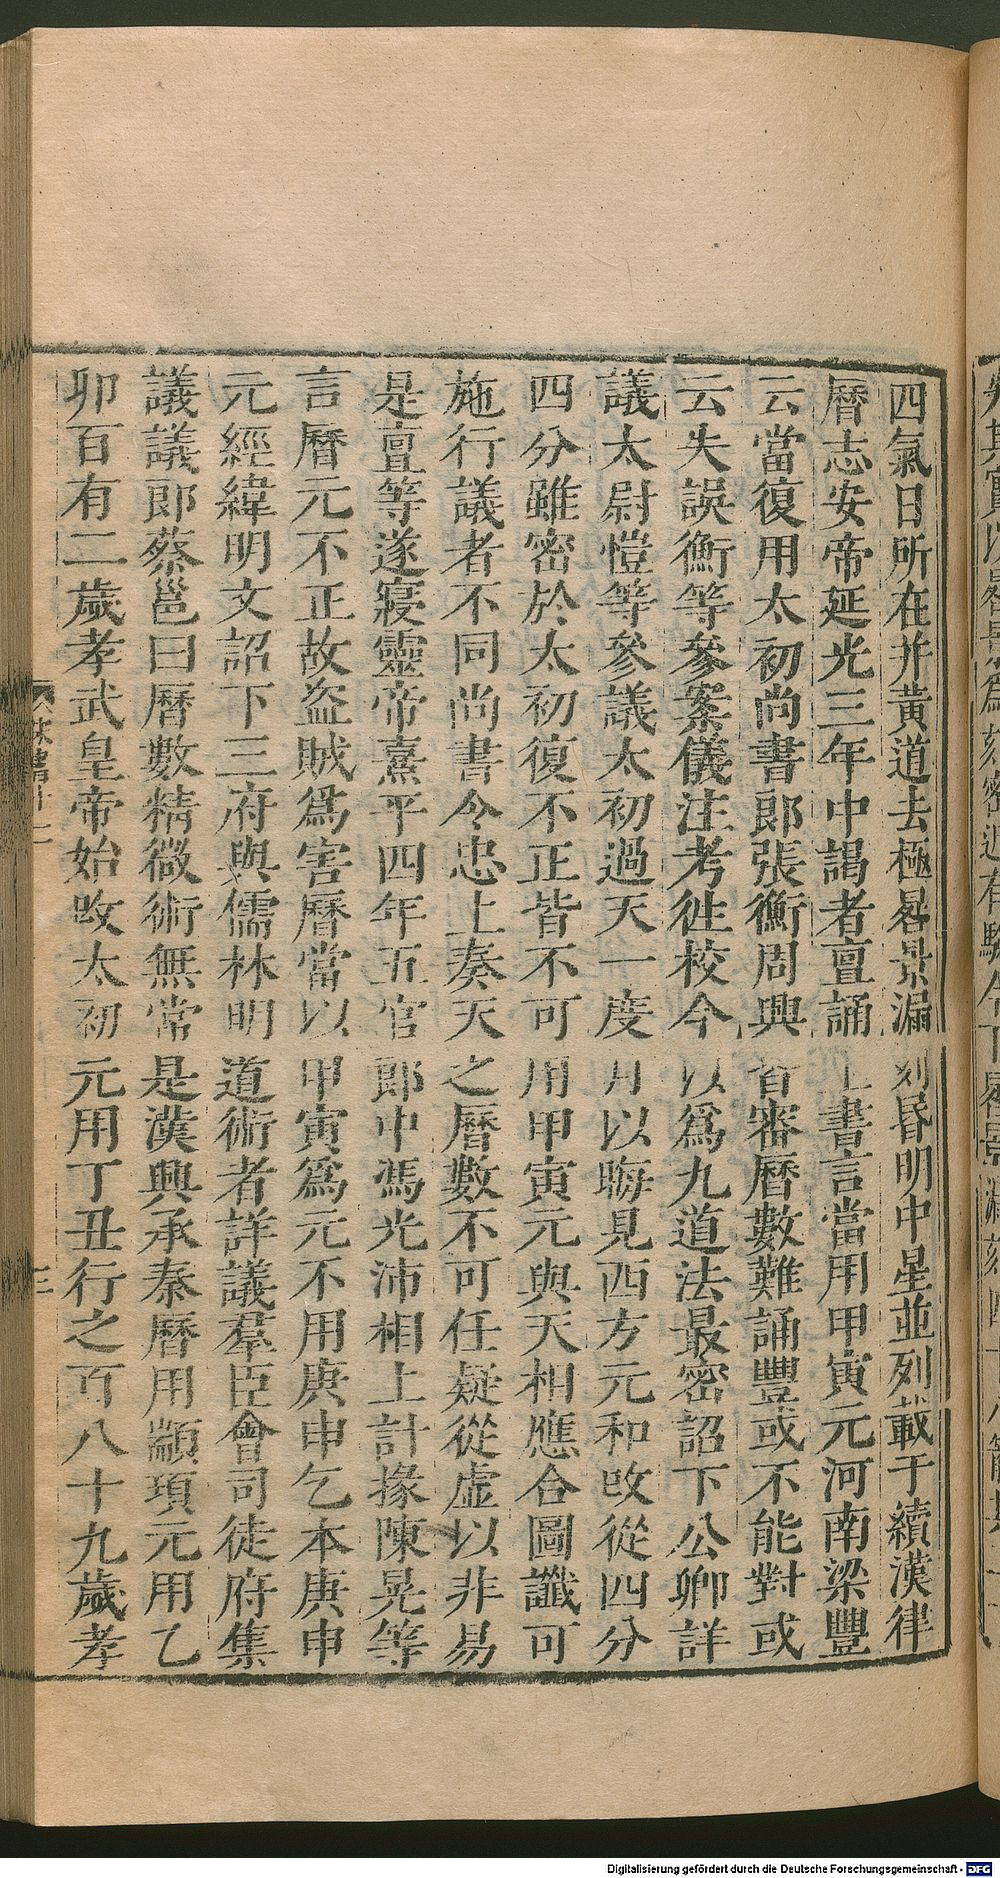 四氣日所在并黃道去極晷景漏刻昏明中星並列載于續漢律
曆志安帝延光三年中謁者亶誦上書言當用甲寅元河南梁豐
云當復用太初尚書郎張衡周興皆審曆數難誦豐或不能對或
云失誤衡等參案儀注考徃校今以爲九道法最密詔下公卿詳
議太尉愷等參議太初過天一度月以晦見西方元和改從四分
四分雖密於太初復不正皆不可用甲寅元與天相應合圖讖可
施行議者不同尚書令忠上奏天之曆數不可任疑從虛以非易
是亶等遂寢靈帝熹平四年五官郎中馮光沛相上計掾陳晃等
言曆元不正故盜賊爲害曆當以甲寅爲元不用庚申乞本庚申
元經緯明文詔下三府與儒林明道術者詳議羣臣會司徒府集
議議郎蔡邕曰曆數精微術無常是漢興承秦曆用顓頊元用乙
卯百有二歲孝武皇帝始改太初元用丁丑行之百八十九歲孝
三
Digitalisierung gefördert durch die Deutsche Forschungsgemeinschaft - DFG